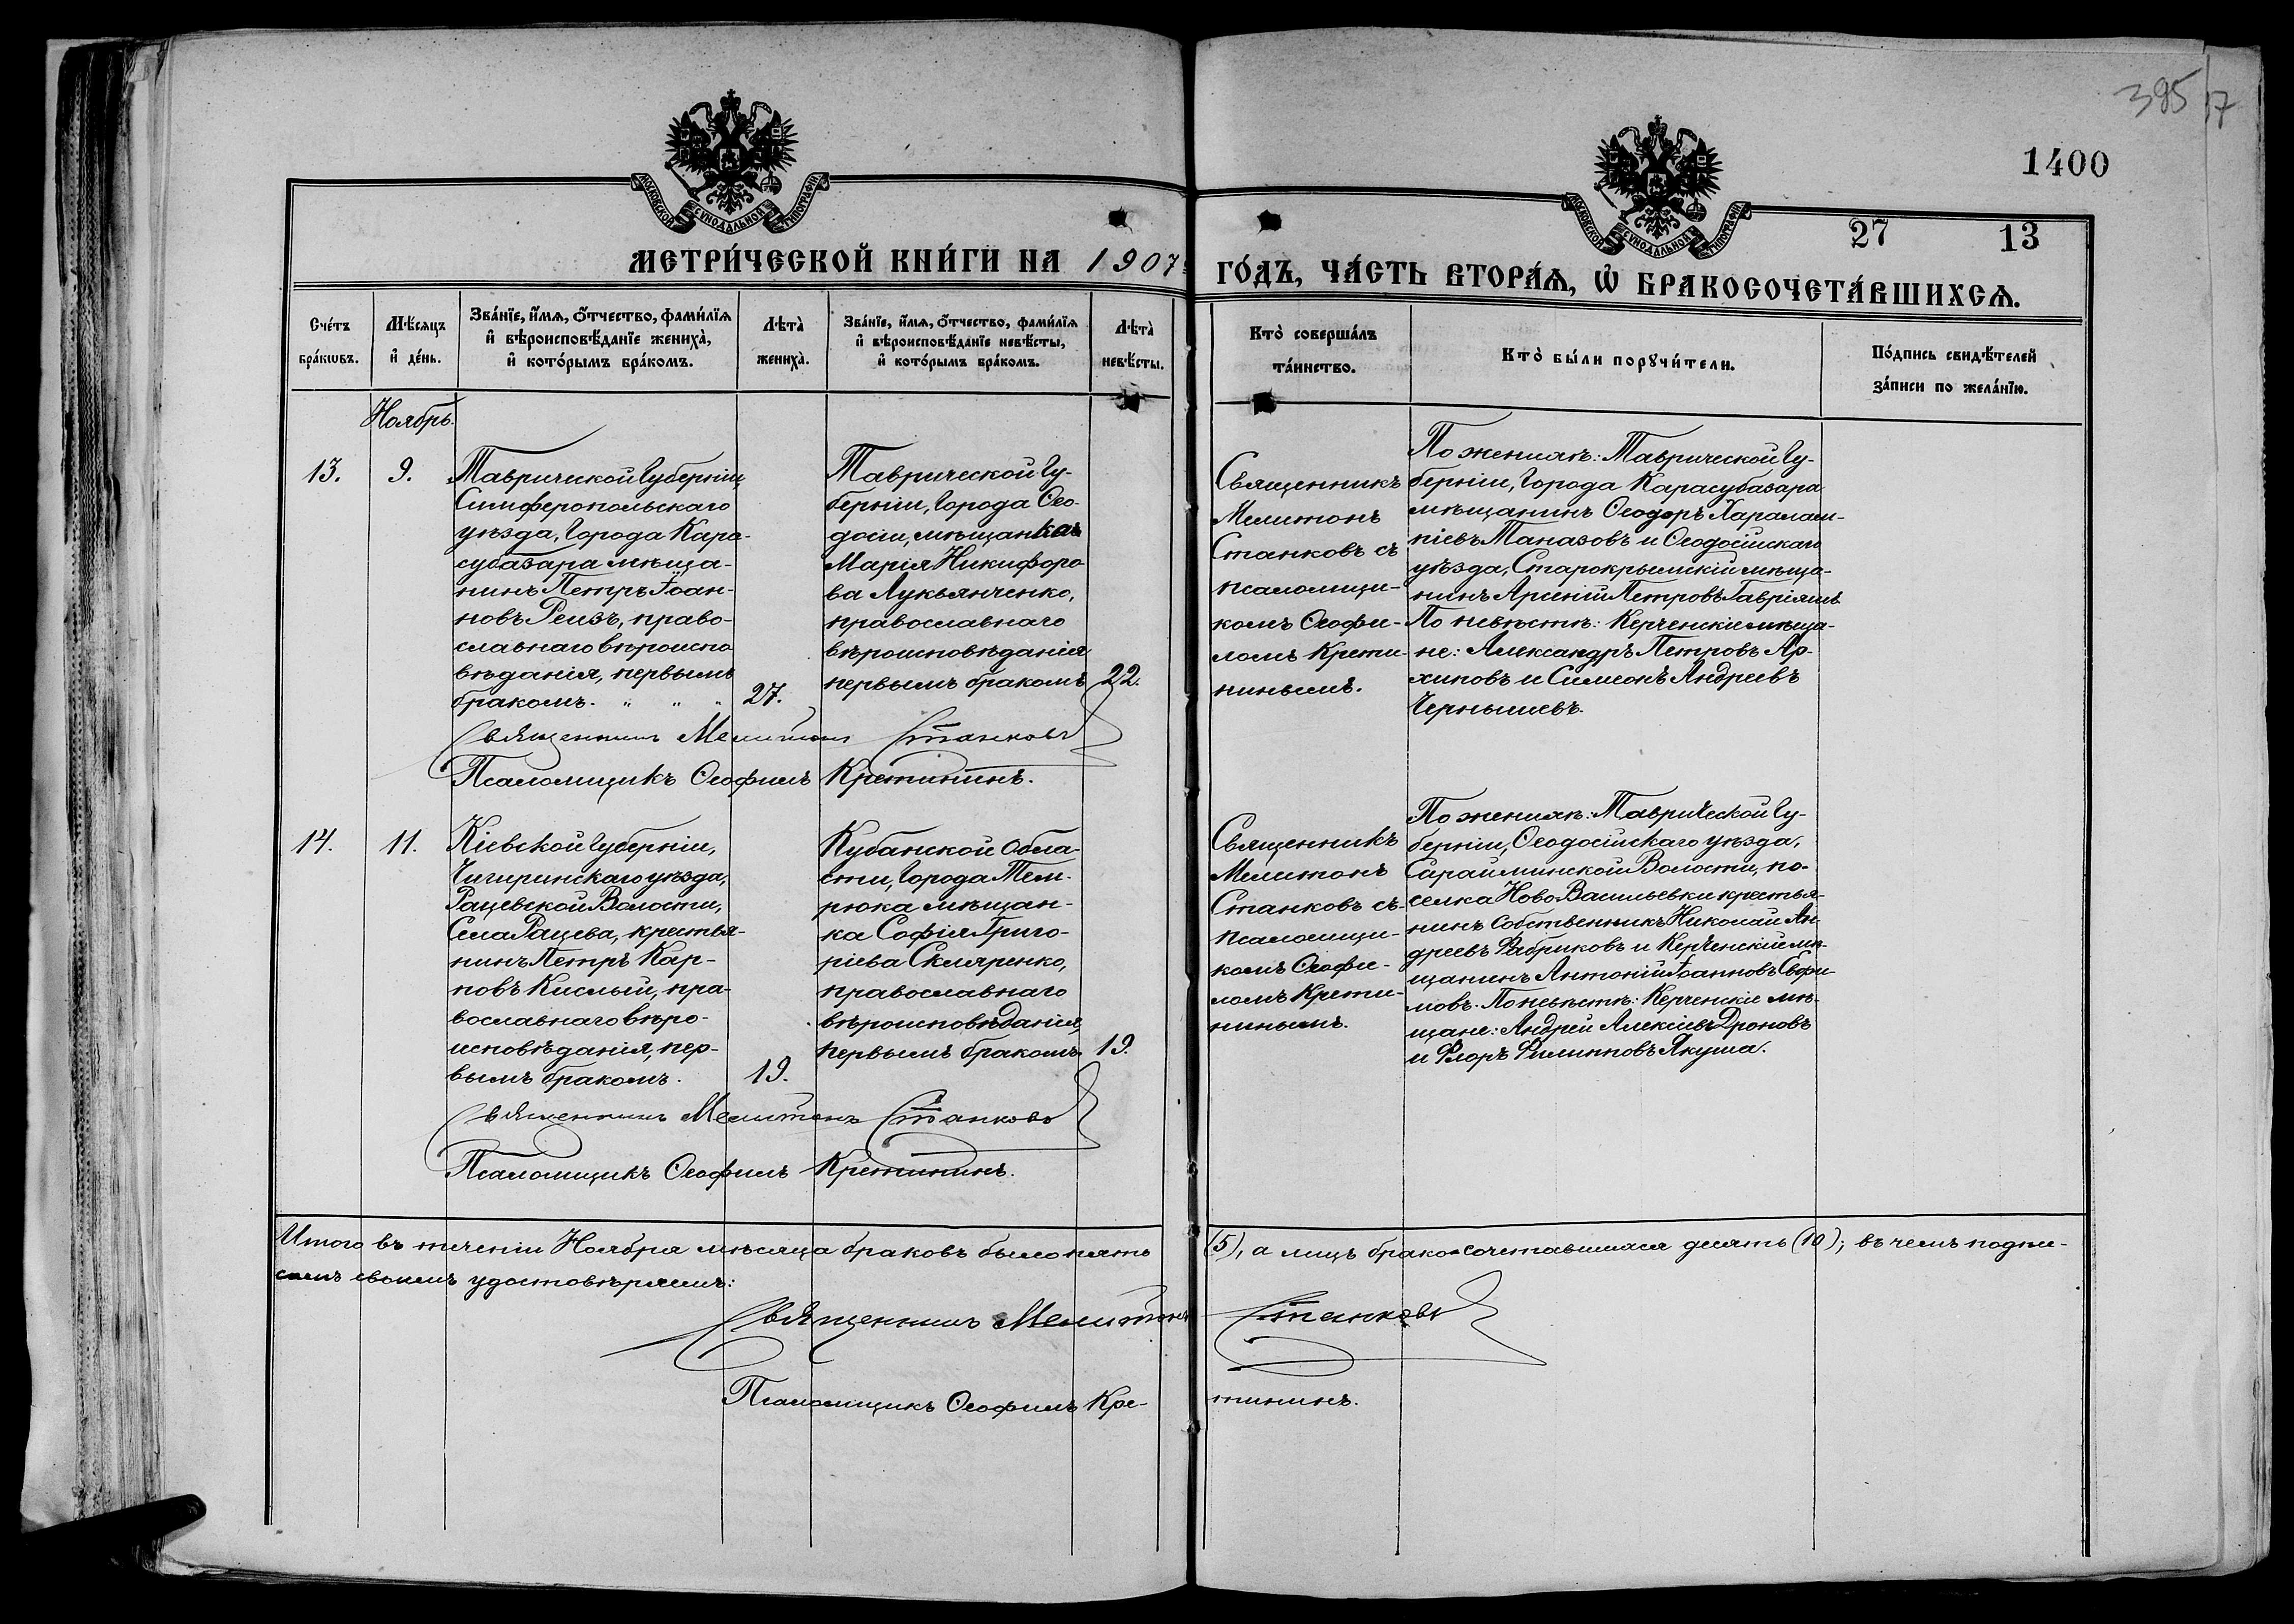 395
17
1400
МОСКОВСКОЙ СѴНОДАЛЬНОЙ ТИПОГРАФІИ
МОСКОВСКОЙ СѴНОДАЛЬНОЙ ТИПОГРАФІИ
27 13
МЕТРИ́ЧЕСКОЙ КНИ́ГИ НА 1907
ГО́ДЪ, ЧА́СТЬ ВТОРА́Ѧ, Ѽ БРАКОСОЧЕТА́ВШИХСѦ.
Сче́тъ бра́кѡвъ.
Мѣ́сяцъ и де́нь.
Зва́нїе, и́мѧ, ѻ́тчество, фами́лїѧ
и вѣроисповѣ́данїе жениха̀,
и кото́рымъ бра́комъ.
Лѣта̀ жениха̀.
Зва́нїе, и́мѧ, ѻ́тчество, фами́лїѧ
и вѣроисповѣ́данїе невѣ́сты,
и кото́рымъ бра́комъ.
Лѣта̀ невѣ́сты.
Кто̀ соверша́лъ
та́инство.
Кто̀ бы́ли порꙋчи́тели.
По́дпись свидѣ́телей
за́писи по жела́нїю.
Ноябрь.
13.
9.
Таврической Губерніи,
Симферопольскаго
уѣзда, Города Кара-
субазара мѣща-
нинъ Петръ Іоан-
новъ Реизъ, право-
славнаго вѣроиспо
вѣданія, первымъ
бракомъ. " " "
27.
Таврической Гу-
берніи, Города Ѳео-
досіи, мѣщанка
Марія Никифоро
ва Лукьянченко,
православнаго
вѣроисповѣданія
первымъ бракомъ
22.
Священникъ
Мелитонъ
Станковъ съ
псаломщи-
комъ Ѳеофи-
ломъ Крети-
нинымъ.
По женихѣ: Таврической Гу-
берніи, Города Карасубазара
мѣщанинъ Ѳеодоръ Харалам-
піевъ Таназовъ и Ѳеодосійскаго
уѣзда, Старокрымскій мѣща-
нинъ Арсеній Петровъ Гавріямъ
По невѣстѣ: Керченскіе мѣща-
не: Александръ Петровъ Ар-
хиповъ и Симеонъ Андреевъ
Чернышевъ.
Священникъ Мелитонъ Станковъ
Псаломщикъ Ѳеофилъ Кретининъ.
14.
11.
Кіевской Губерніи,
Чигиринскаго уѣзда,
Рацевской Волости,
Села Рацева, крестья-
нинъ Петръ Кар-
повъ Кислый, пра-
вославнаго вѣро-
исповѣданія, пер-
вымъ бракомъ.
19.
Кубанской Обла-
сти, Города Тем-
рюка мѣщан-
ка Софія Григо-
ріева Скляренко,
православнаго
вѣроисповѣданія,
первымъ бракомъ.
19.
Священникъ
Мелитонъ
Станковъ съ
псаломщи-
комъ Ѳеофи-
ломъ Крети-
нинымъ.
По женихѣ: Таврической Гу-
берніи, Ѳеодосійскаго уѣзда,
Сарайминской Волости, по-
селка Ново Васильевки крестья-
нинъ собственникъ Николай Ан-
дреевъ Фабриковъ и Керченскій мѣ-
щанинъ Антоній Іоанновъ Ефи-
мовъ. По невѣстѣ: Керченскіе мѣ-
щане: Андрей Алексіевъ Дроновъ
и Флоръ Филипповъ Якуша.
Священникъ Мелитонъ Станковъ
Псаломщикъ Ѳеофилъ Кретининъ.
Итого въ теченіи Ноября мѣсяца браковъ было пять (5), а лицъ бракосочетавшихся десять (10); въ чемъ подпи-
сомъ своимъ удостовѣряемъ:
Священникъ Мелитонъ Станковъ
Псаломщикъ Ѳеофилъ Кре-тининъ.